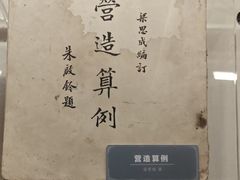 梁思成編訂
營造算例
朱啟鈐題
营造算例